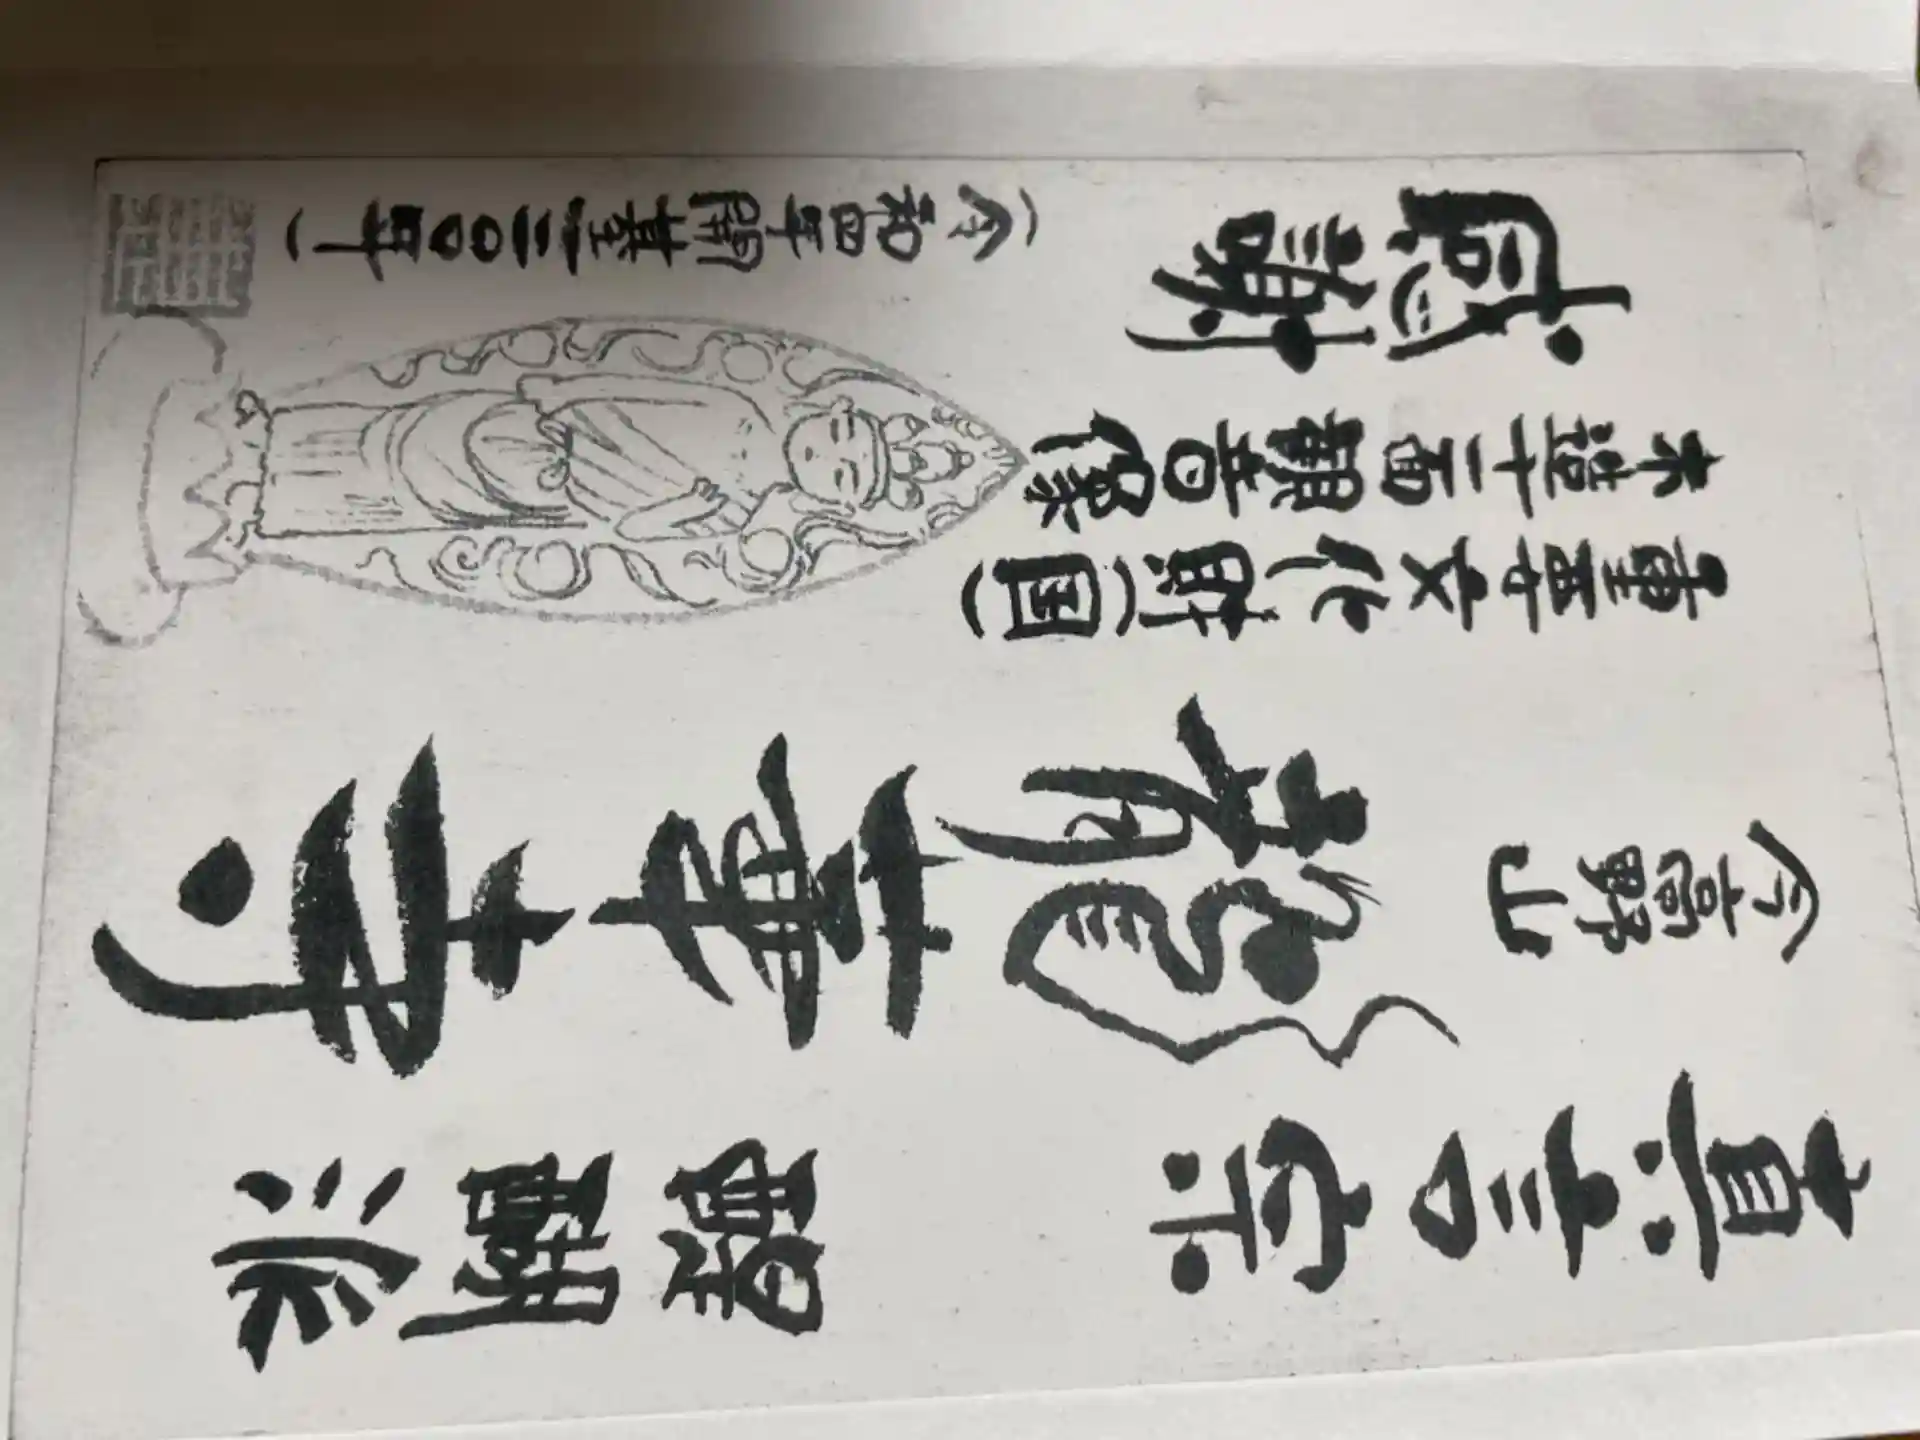 真言宗 醍醐派
今高野山
龍華寺
重要文化財(国)
木造十一面観音像
感謝
(令和四年開基一二〇〇年)